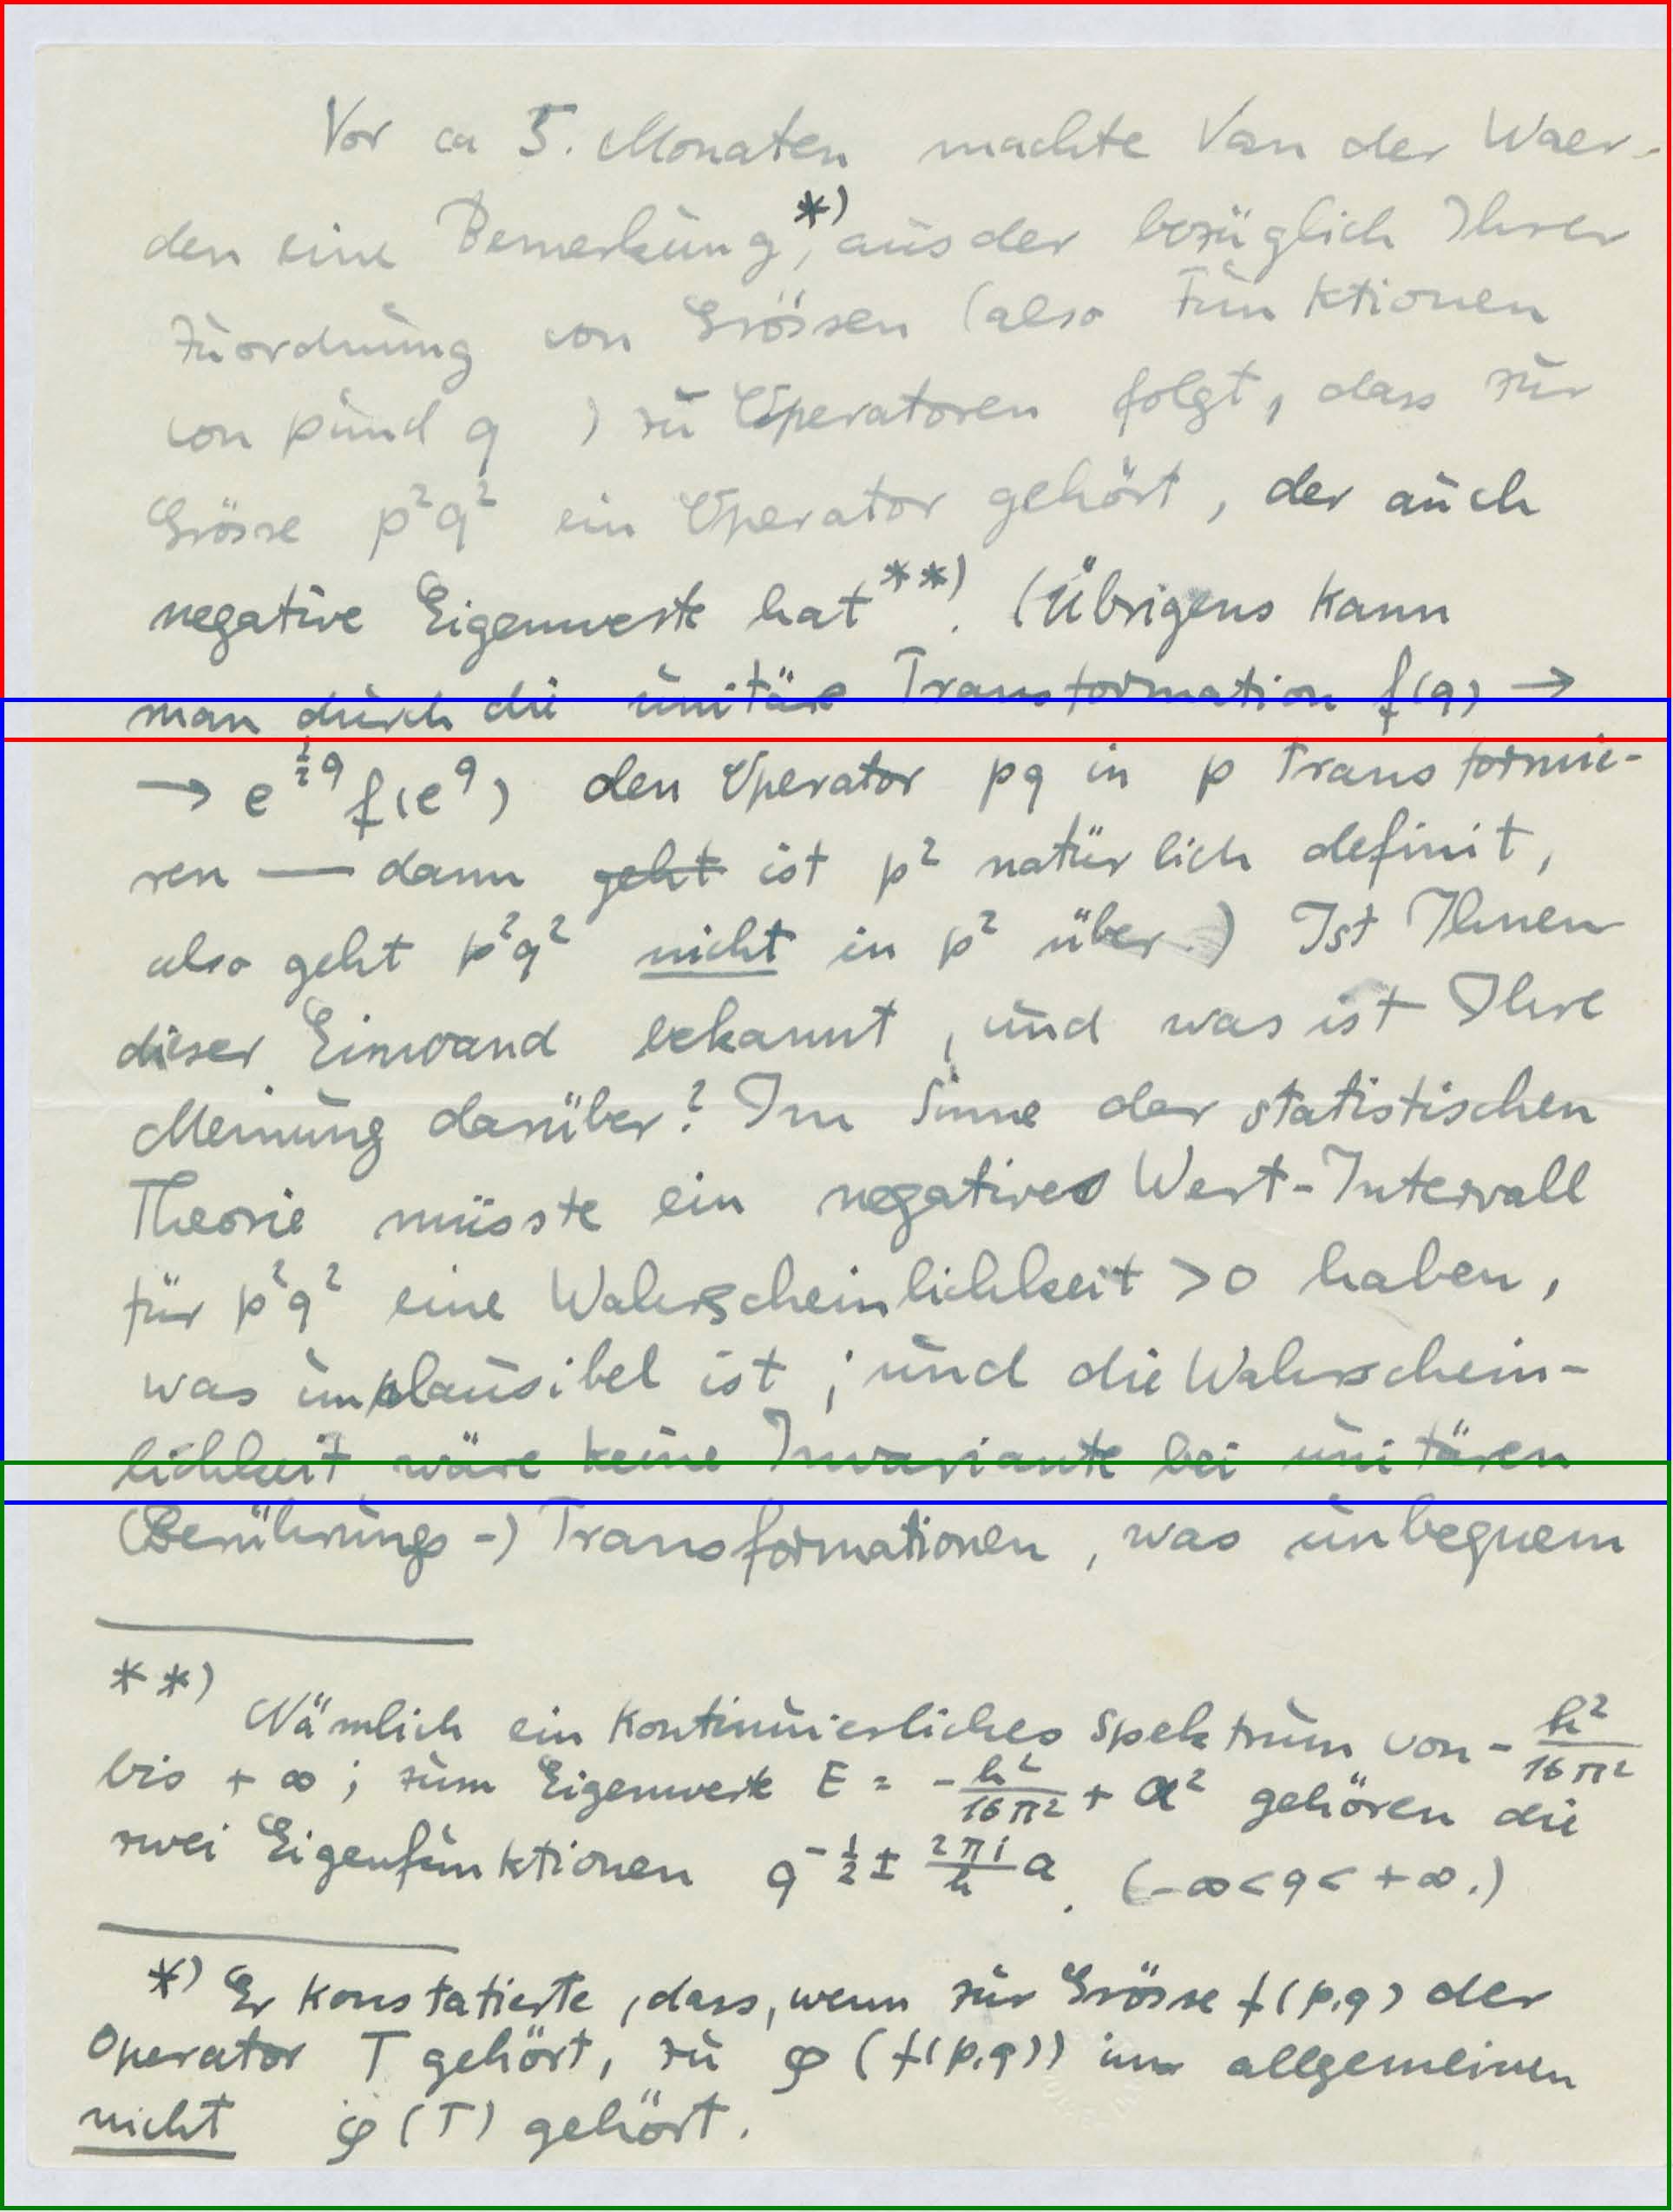 Vor ca 5. Monaten machte Van der Waer-
den eine Bemerkung*), aus der bezüglich Ihrer
Zuordnung von Grössen (also Funktionen
von p und q ) zu Operatoren folgt, dass zur
Grösse p²q² ein Operator gehört, der auch
negative Eigenwerte hat**). (Übrigens kann
man durch die unitäre Transformation f(q) →
→ e^{½q} f(e^q) den Operator pq in p transformie-
ren — dann geht ist p² natürlich definit,
also geht p²q² nicht in p² über.) Ist Ihnen
dieser Einwand bekannt, und was ist Ihre
Meinung darüber? Im Sinne der statistischen
Theorie müsste ein negatives Wert-Intervall
für p²q² eine Wahrscheinlichkeit >0 haben,
was implausibel ist; und die Wahrschein-
lichkeit wäre keine Invariante bei unitären
(Berührungs-) Transformationen, was unbequem
**) Nämlich ein kontinuierliches Spektrum von - h²/16π²
bis + ∞; zum Eigenwerte E = - h²/16π² + a² gehören die
zwei Eigenfunktionen q^{-½ ± 2πi/h a}. (-∞<q< +∞.)
*) Er konstatierte, dass, wenn zur Grösse f(p,q) der
Operator T gehört, zu φ(f(p,q)) im allgemeinen
nicht φ(T) gehört.